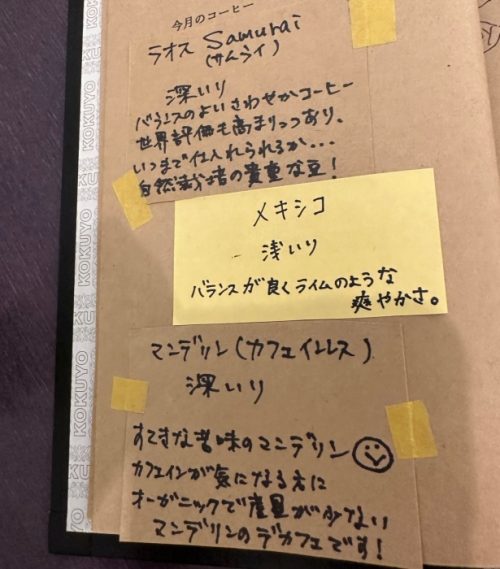 今月のコーヒー
ラオス Samurai
(サムライ)
深いり
バランスのよいさわやかコーヒー
世界評価も高まりつつあり、
いつまで仕入れられるか...
自然栽培の貴重な豆!
メキシコ
浅いり
バランスが良くライムのような
爽やかさ。
マンデリン(カフェインレス)
深いり
すてきな苦味のマンデリン
カフェインが気になる方に
オーガニックで産量が少ない
マンデリンのデカフェです!
KOKUYO
KOKUYO
KOKUYO
KOKUYO
KOKUYO